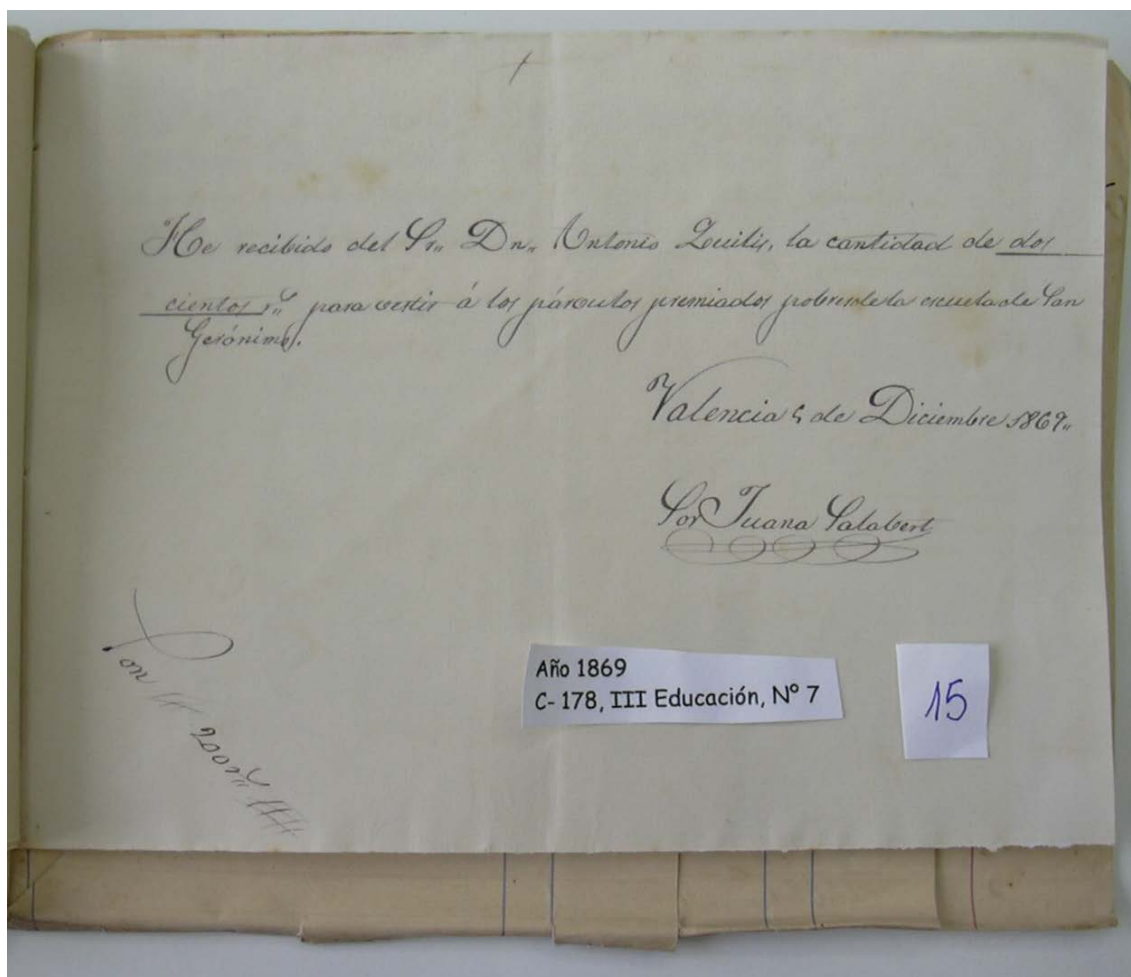 He recibido del Sr,, Dn,, Antonio Quilis, la cantidad de dos
cientos r,,s para vestir á los párvulos premiados pobres de la escuela de San
Gerónimo.
Valencia 5 de Diciembre 1869,,
Sor Juana Salabert
Son # 200 r,,s #
Año 1869
C- 178, III Educación, Nº 7
15